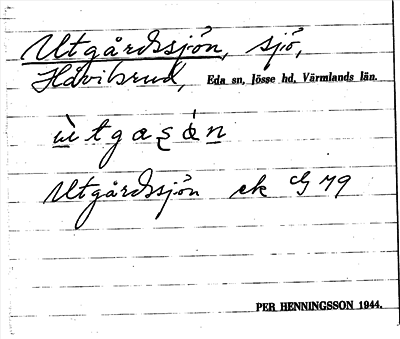 Utgårdssjön, sjö,
Håvilsrud, Eda sn, Jösse hd, Värmlands län.
Utgårdssjön ek
PER HENNINGSSON 1944.